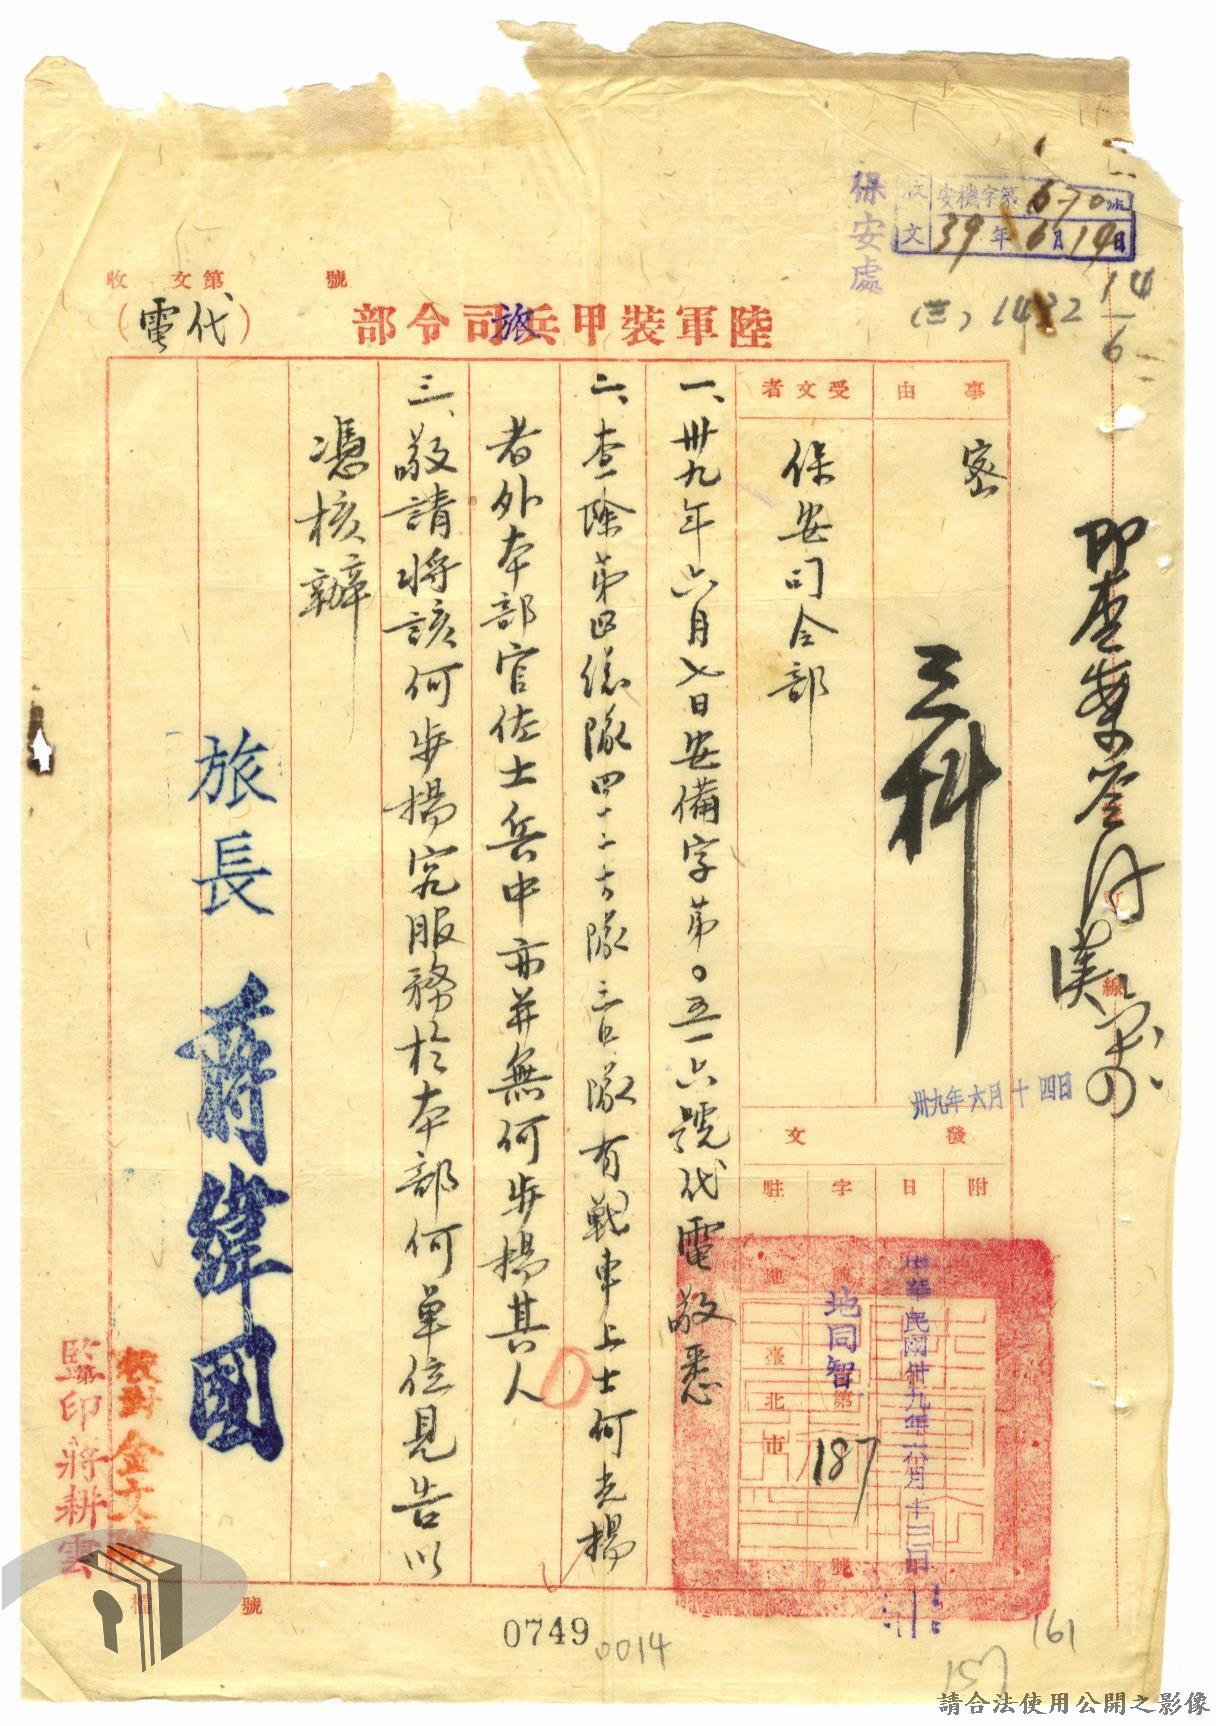 收文第 號
陸軍裝甲兵旅司令部
（代電）
保安處
收文 安機字第670號
39年6月14日
(三) 1432
14/6
事由
密
三科
受文者
保安司令部
卅九年六月十四日
發文
附
日 中華民國卅九年六月十三日
字 地同智第187號
駐地 臺北市
一、卅九年六月七日安備字第〇五一六號代電敬悉
二、查除第四總隊四十二大隊三中隊有戰車上士何克楊
者外本部官佐士兵中亦并無何步楊其人
三、敬請將該何步楊究服務於本部何單位見告以
憑核辦
旅長 蔣緯國
校對 金
監印 蔣耕雲
檔 號
0749
0014
161
157
請合法使用公開之影像